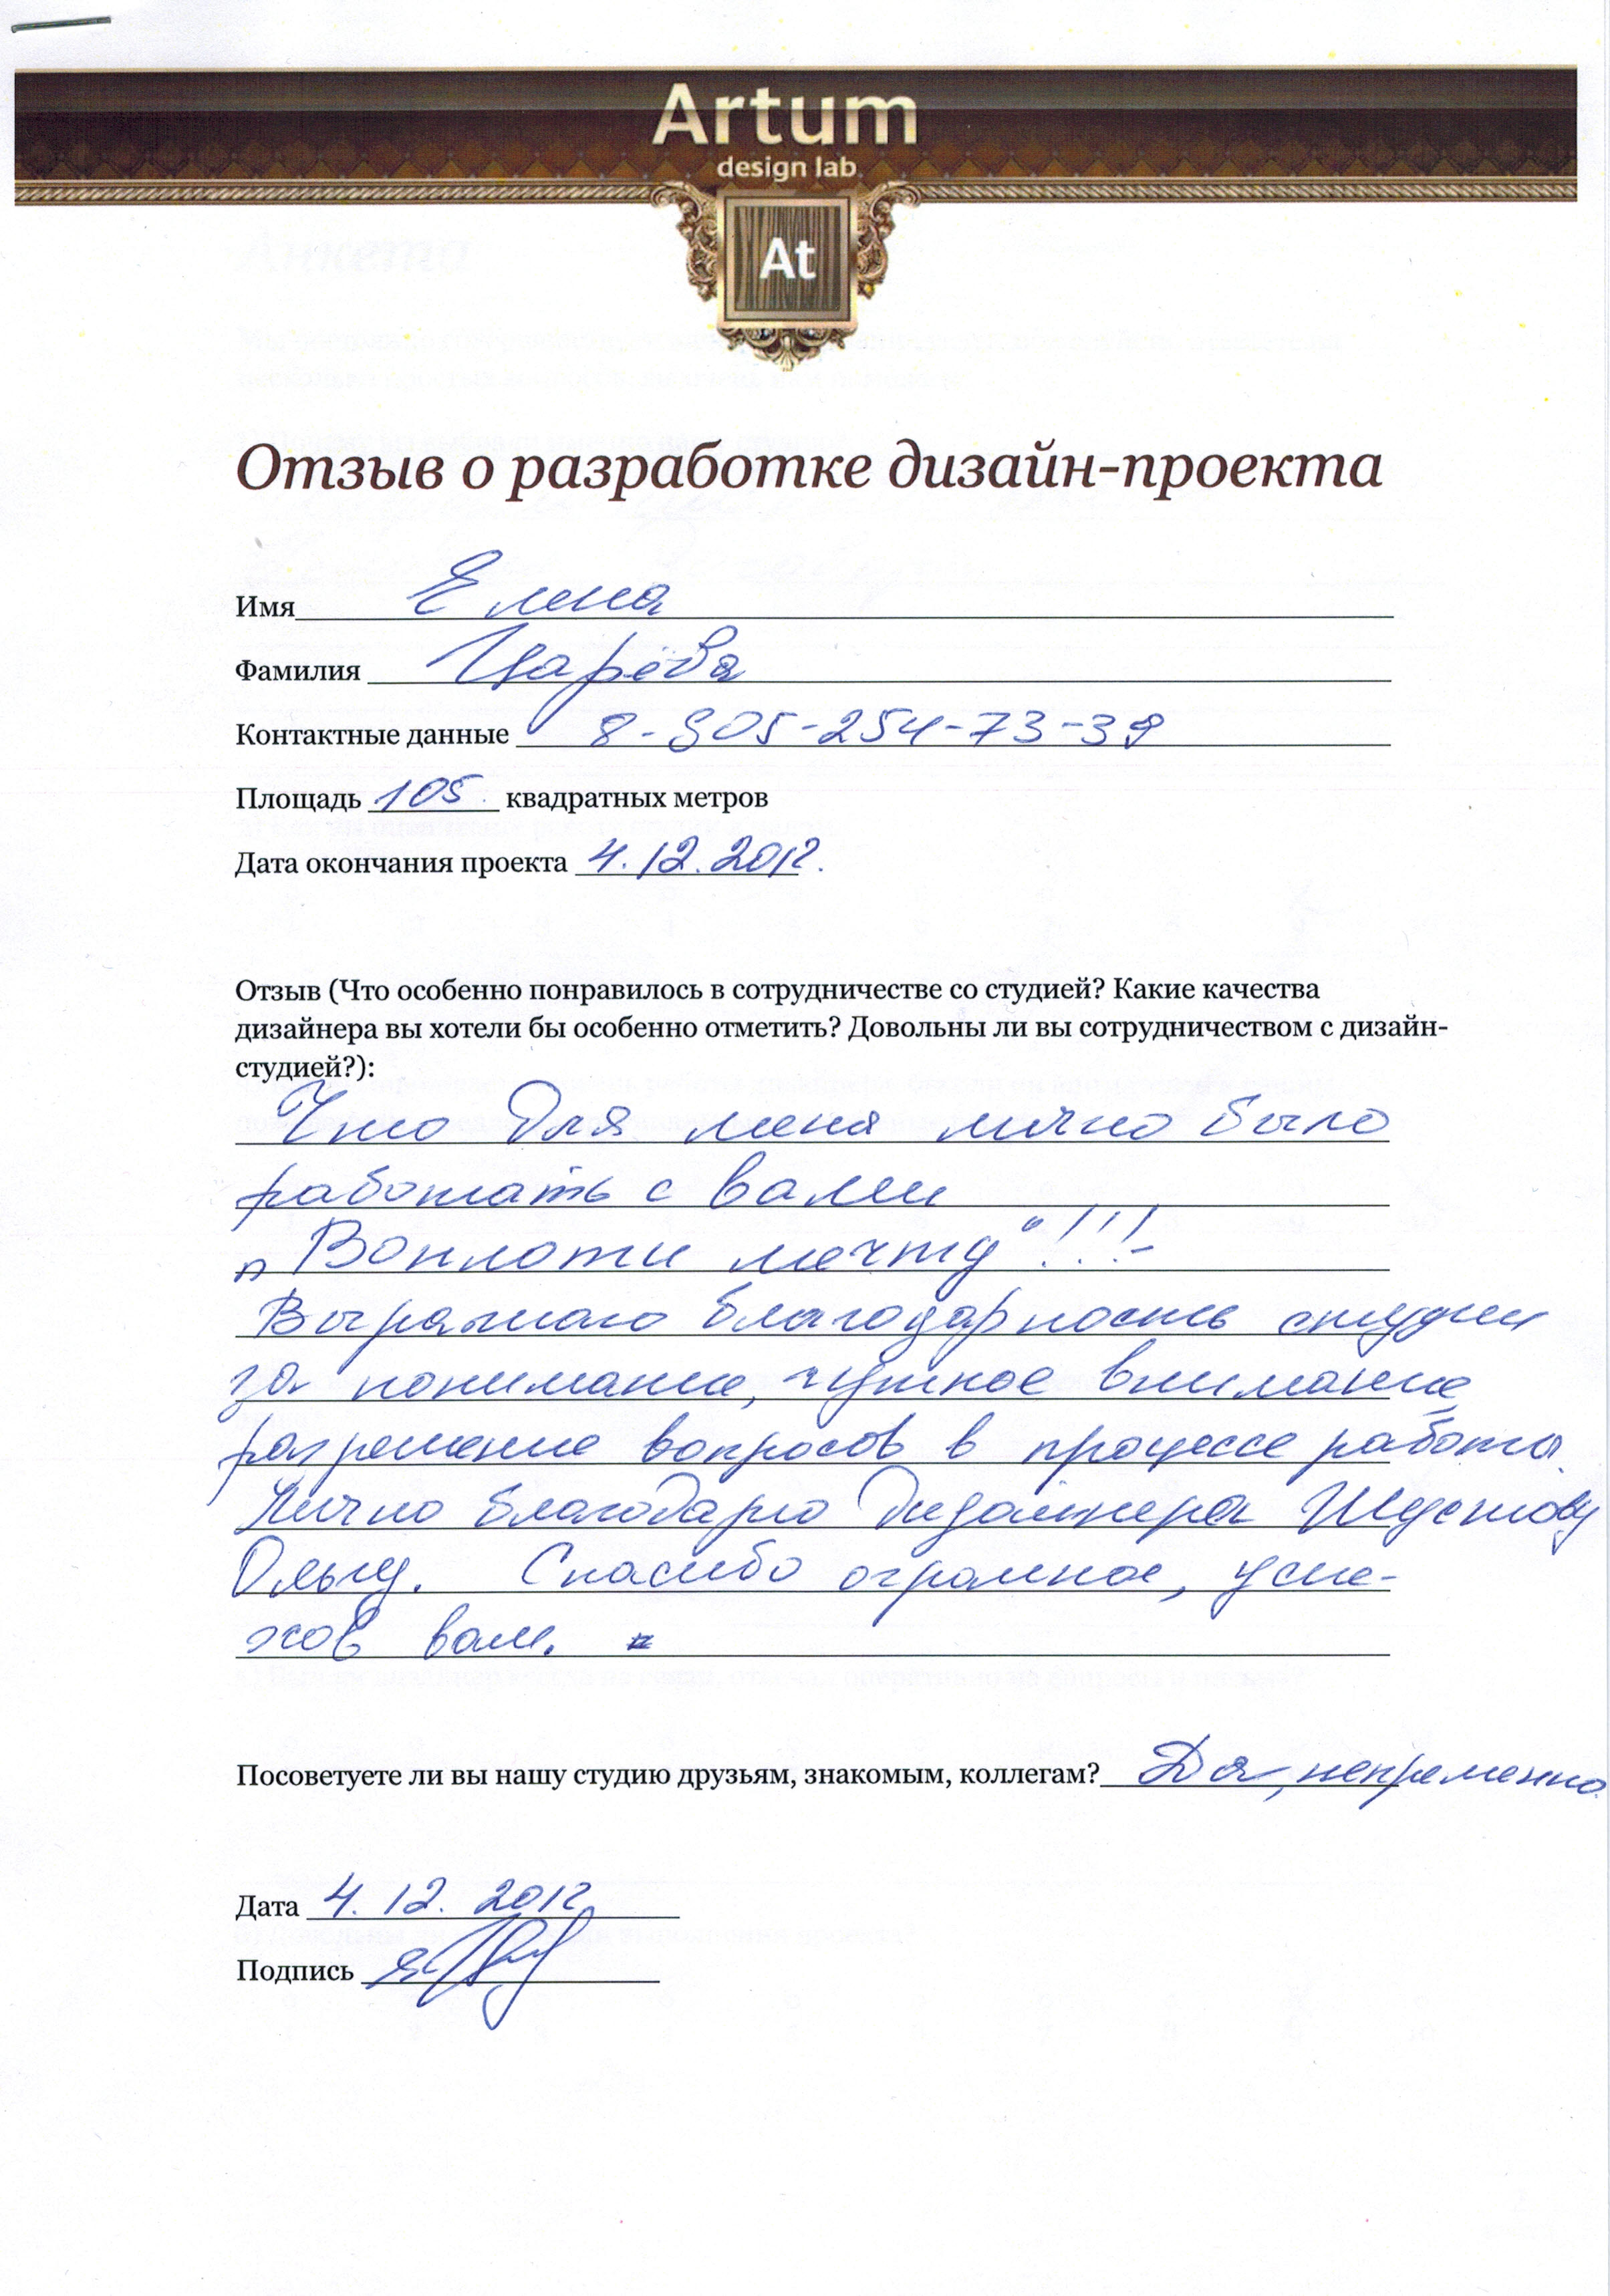 Artum
design lab
At
Отзыв о разработке дизайн-проекта
Имя Елена
Фамилия Царёва
Контактные данные 8-905-254-73-39
Площадь 105 квадратных метров
Дата окончания проекта 4.12.2012.
Отзыв (Что особенно понравилось в сотрудничестве со студией? Какие качества
дизайнера вы хотели бы особенно отметить? Довольны ли вы сотрудничеством с дизайн-
студией?):
Что для меня лично было
работать с вами
„Воплоти мечту“!!!-
Выражаю благодарность студии
за понимание, чуткое внимание,
разрешение вопросов в процессе работы.
Лично благодарю Дизайнера Шустову
Ольгу. Спасибо огромное, успе-
хов вам.
Посоветуете ли вы нашу студию друзьям, знакомым, коллегам? Да, непременно.
Дата 4.12.2012
Подпись